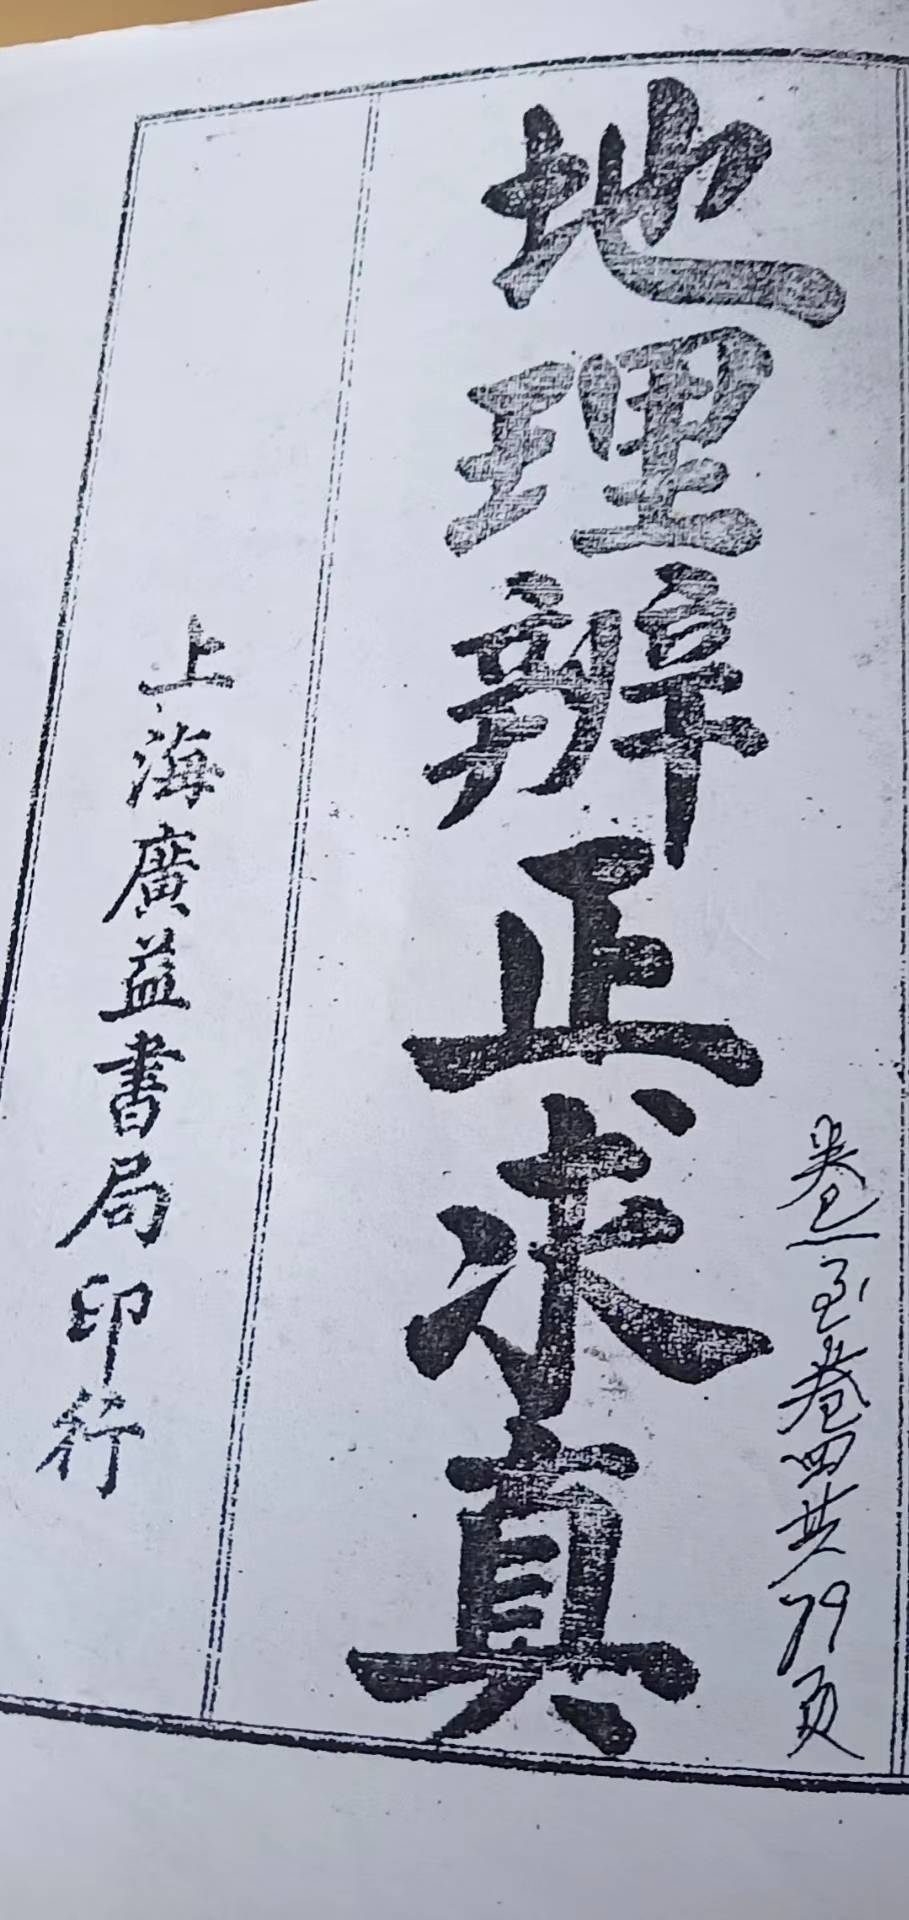 卷一至卷四共79页
地理辨正求真
上海廣益書局印行